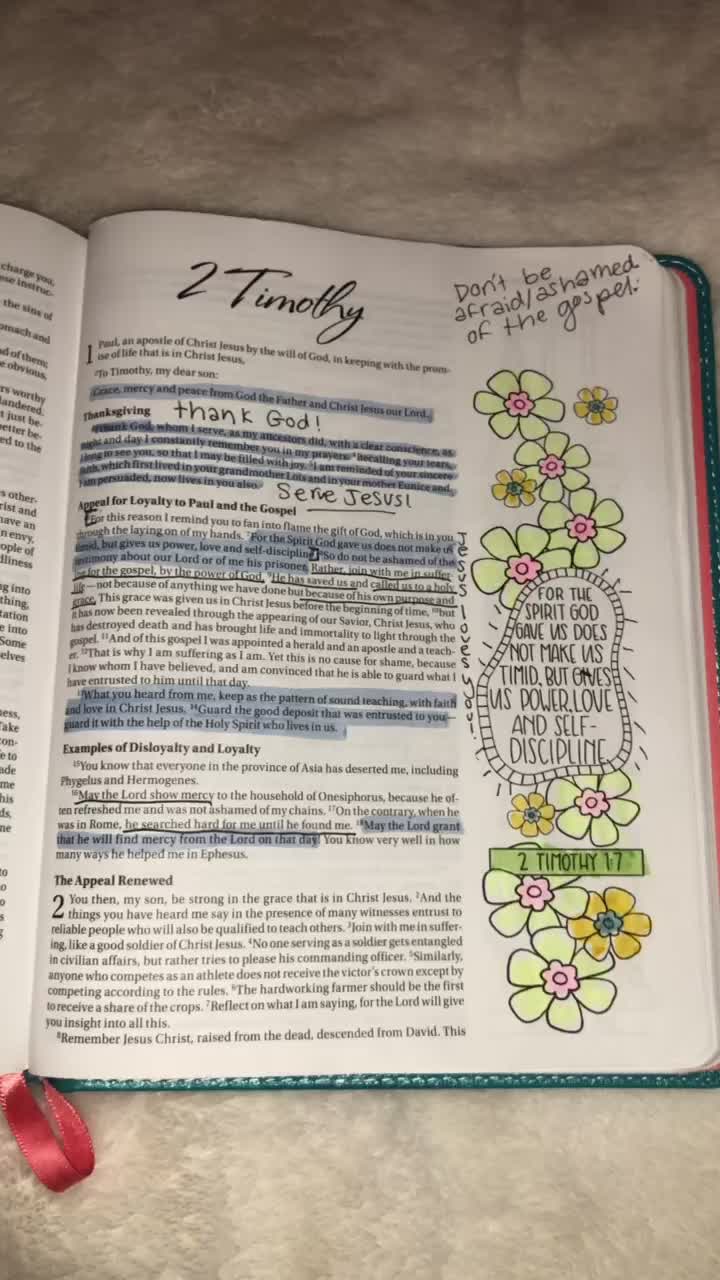 charge you,
ese instruc-
the sins of
omach and
d of them;
e obvious,
rs worthy
landered.
t just be-
etter be-
ed to the
s other-
rist and
have an
n envy,
ople of
dliness
ng into
thing,
tation
e into
Some
selves
ness,
Take
con-
e to
ade
me
his
ds,
ne
to
2 Timothy
Don't be
afraid/ashamed
of the gospel.
1 Paul, an apostle of Christ Jesus by the will of God, in keeping with the prom-
ise of life that is in Christ Jesus,
²To Timothy, my dear son:
Grace, mercy and peace from God the Father and Christ Jesus our Lord.
Thanksgiving thank God!
³I thank God, whom I serve, as my ancestors did, with a clear conscience, as
night and day I constantly remember you in my prayers. ⁴Recalling your tears,
I long to see you, so that I may be filled with joy. ⁵I am reminded of your sincere
faith, which first lived in your grandmother Lois and in your mother Eunice and,
I am persuaded, now lives in you also. Serve Jesus!
Appeal for Loyalty to Paul and the Gospel
⁶For this reason I remind you to fan into flame the gift of God, which is in you
through the laying on of my hands. ⁷For the Spirit God gave us does not make us
timid, but gives us power, love and self-discipline. ⁸So do not be ashamed of the
testimony about our Lord or of me his prisoner. Rather, join with me in suffer-
ing for the gospel, by the power of God. ⁹He has saved us and called us to a holy
life—not because of anything we have done but because of his own purpose and
grace. This grace was given us in Christ Jesus before the beginning of time, ¹⁰but
it has now been revealed through the appearing of our Savior, Christ Jesus, who
has destroyed death and has brought life and immortality to light through the
gospel. ¹¹And of this gospel I was appointed a herald and an apostle and a teach-
er. ¹²That is why I am suffering as I am. Yet this is no cause for shame, because
I know whom I have believed, and am convinced that he is able to guard what I
have entrusted to him until that day.
¹³What you heard from me, keep as the pattern of sound teaching, with faith
and love in Christ Jesus. ¹⁴Guard the good deposit that was entrusted to you—
guard it with the help of the Holy Spirit who lives in us.
Examples of Disloyalty and Loyalty
¹⁵You know that everyone in the province of Asia has deserted me, including
Phygelus and Hermogenes.
¹⁶May the Lord show mercy to the household of Onesiphorus, because he of-
ten refreshed me and was not ashamed of my chains. ¹⁷On the contrary, when he
was in Rome, he searched hard for me until he found me. ¹⁸May the Lord grant
that he will find mercy from the Lord on that day! You know very well in how
many ways he helped me in Ephesus.
The Appeal Renewed
2 You then, my son, be strong in the grace that is in Christ Jesus. ²And the
things you have heard me say in the presence of many witnesses entrust to
reliable people who will also be qualified to teach others. ³Join with me in suffer-
ing, like a good soldier of Christ Jesus. ⁴No one serving as a soldier gets entangled
in civilian affairs, but rather tries to please his commanding officer. ⁵Similarly,
anyone who competes as an athlete does not receive the victor's crown except by
competing according to the rules. ⁶The hardworking farmer should be the first
to receive a share of the crops. ⁷Reflect on what I am saying, for the Lord will give
you insight into all this.
⁸Remember Jesus Christ, raised from the dead, descended from David. This
Jesus loves you!
FOR THE
SPIRIT GOD
GAVE US DOES
NOT MAKE US
TIMID, BUT GIVES
US POWER, LOVE
AND SELF-
DISCIPLINE
2 TIMOTHY 1:7